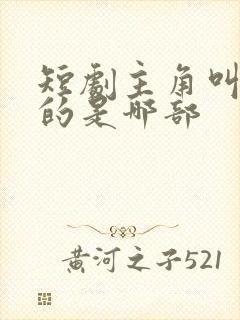 短剧主角叫
的是哪部
黄河之子521